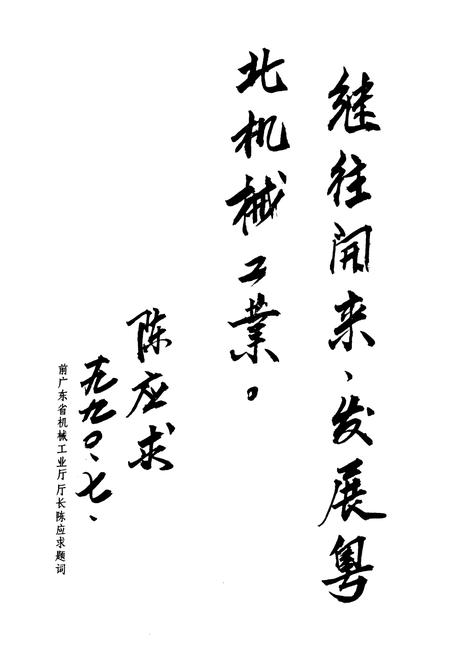 继往开来、发展粤
北机械工業。
陈应求
一九九〇、七、
前广东省机械工业厅厅长陈应求题词